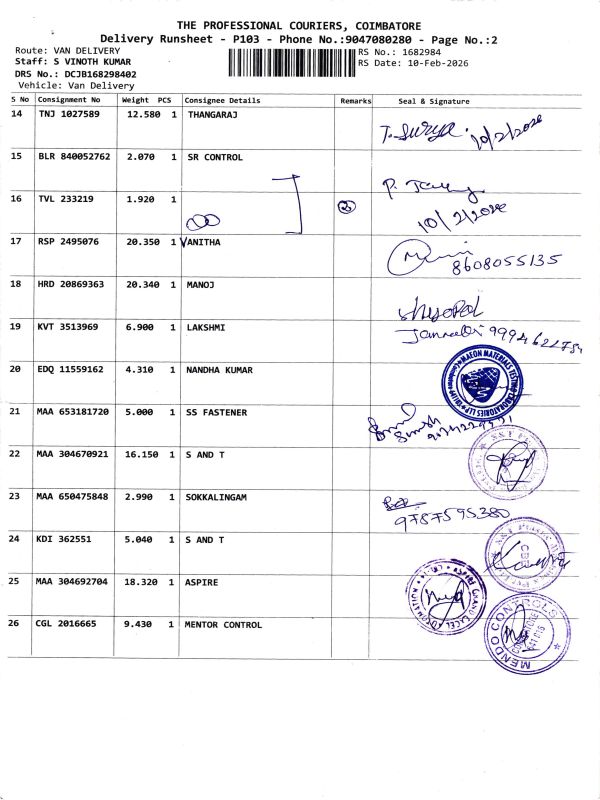 THE PROFESSIONAL COURIERS, COIMBATORE
Delivery Runsheet - P103 - Phone No.:9047080280 - Page No.:2
Route: VAN DELIVERY
RS No.: 1682984
Staff: S VINOTH KUMAR
RS Date: 10-Feb-2026
DRS No.: DCJB168298402
Vehicle: Van Delivery
S No Consignment No Weight PCS Consignee Details Remarks Seal & Signature
14 TNJ 1027589 12.580 1 THANGARAJ
T. Surya. 10/2/2026
15 BLR 840052762 2.070 1 SR CONTROL
16 TVL 233219 1.920 1
10/2/2026
17 RSP 2495076 20.350 1 VANITHA
8608055135
18 HRD 20869363 20.340 1 MANOJ
19 KVT 3513969 6.900 1 LAKSHMI
20 EDQ 11559162 4.310 1 NANDHA KUMAR
MAEON MATERIALS TESTING LABORATORIES LLP
21 MAA 653181720 5.000 1 SS FASTENER
22 MAA 304670921 16.150 1 S AND T
23 MAA 650475848 2.990 1 SOKKALINGAM
9787595380
24 KDI 362551 5.040 1 S AND T
25 MAA 304692704 18.320 1 ASPIRE
26 CGL 2016665 9.430 1 MENTOR CONTROL
MENDO CONTROLS